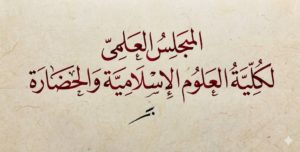 المَجلِسُ العِلمِيّ
لكُلِّيَّةُ العُلُومِ الإِسْلَامِيَّة وَالحَضَارَة